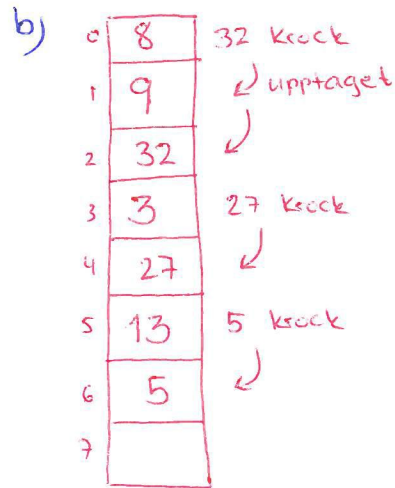 b)
0 8 32 krock
1 9 upptaget
2 32
3 3 27 krock
4 27
5 13 5 krock
6 5
7